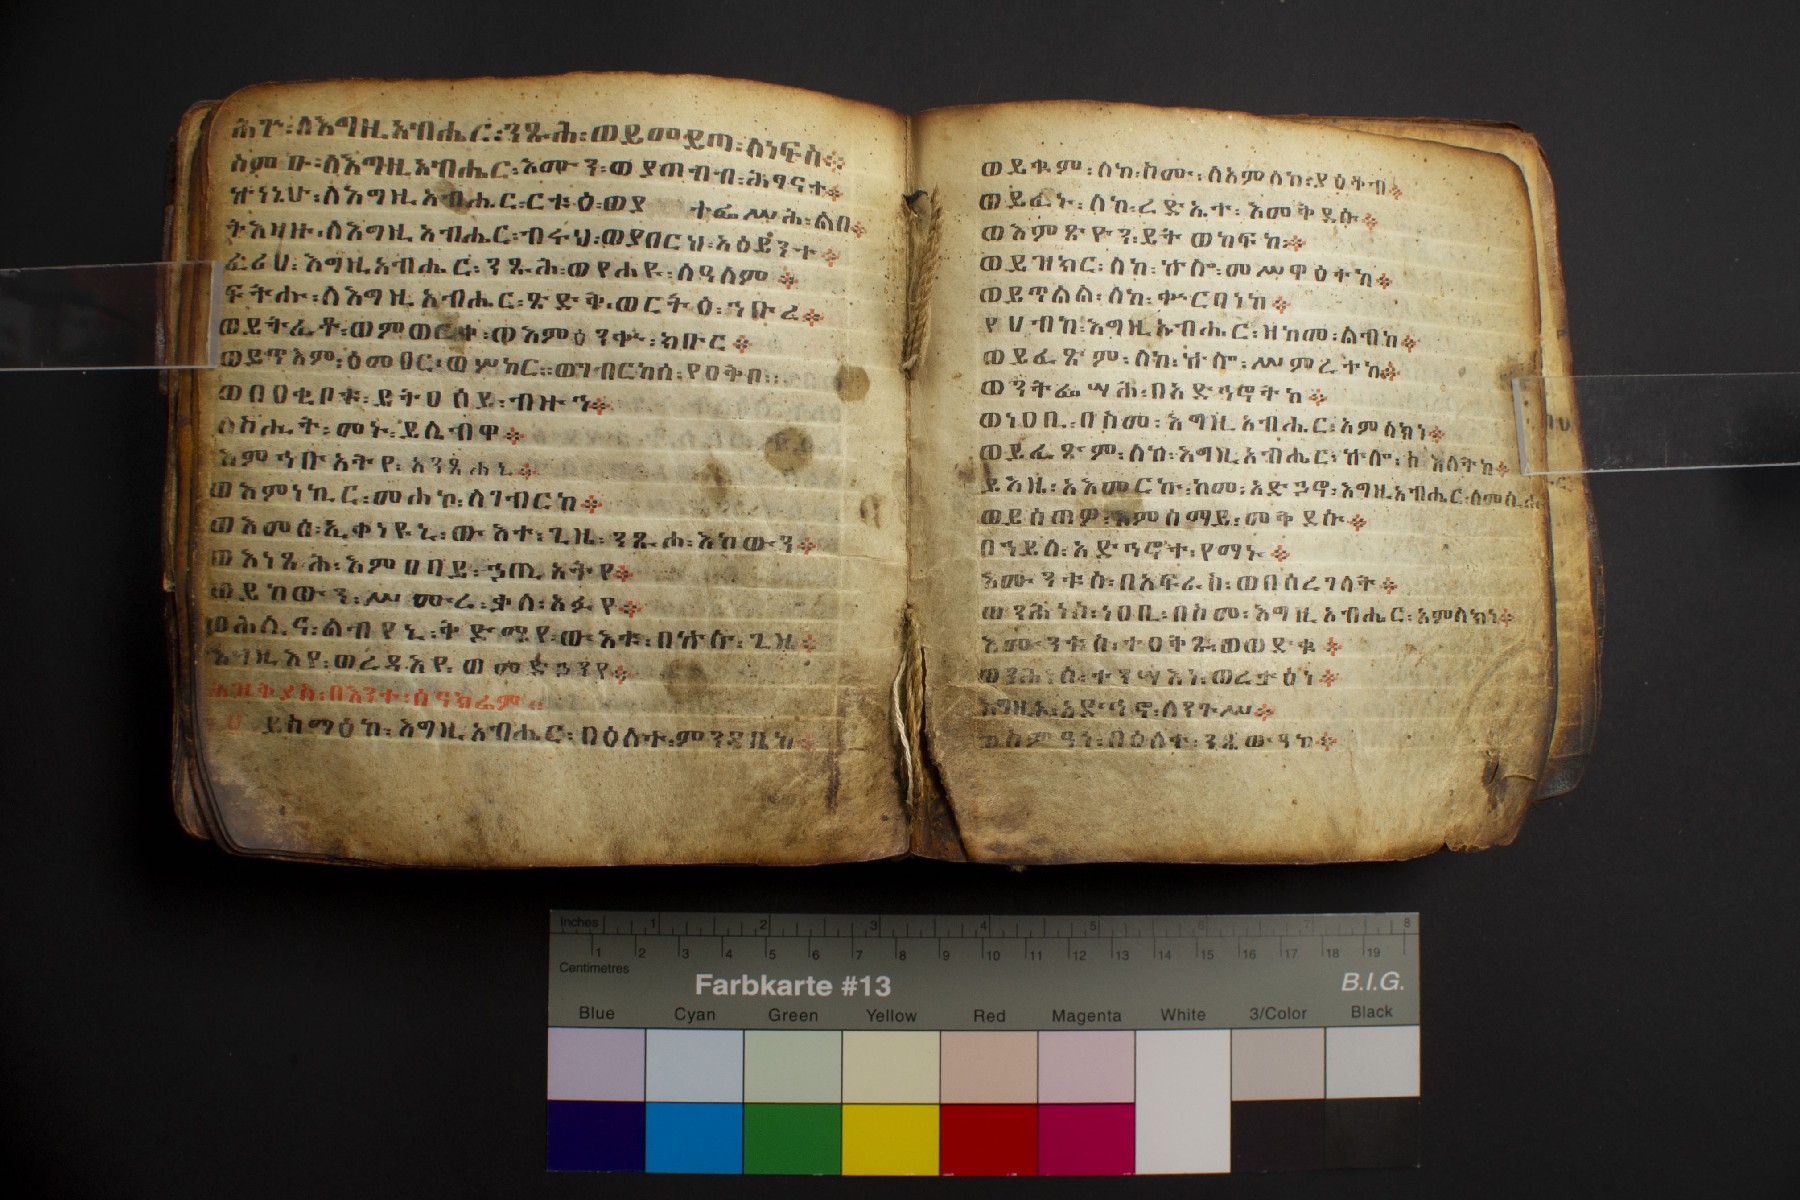 ሕጉ፡ለእግዚአብሔር፡ንጹሕ፡ወይመይጣ፡ለነፍስ፨
ስምዑ፡ለእግዚአብሔር፡እሙን፡ወያጠብብ፡ሕፃናተ፨
ኵነኔሁ፡ለእግዚአብሔር፡ርቱዕ፡ወያ ተፌሥሕ፡ልበ፨
ትእዛዙ፡ለእግዚአብሔር፡ብሩህ፡ወያበርህ፡አዕይንተ፨
ፈሪሀ፡እግዚአብሔር፡ንጹሕ፡ወየሐዩ፡ለዓለም፨
ፍትሑ፡ለእግዚአብሔር፡ጽድቅ፡ወርትዕ፡ኅቡረ፨
ወይትፈቶ፡ወምወርቀ፡ወእምዕንቍ፡ክቡር፨
ወይጥእም፡ዕመፀር፡ወሦከር።ወገብርከሰ፡የዐቅበ።
ወበዐቂቦቱ፡ይትዐሰይ፡ብዙኅ፨
ለስሒት፡መኑ፡ይሌብዋ፨
እምኅቡአትየ፡አንጽሐኒ፨
ወእምነኪር፡መሐኮ፡ለገብርከ፨
ወእመሰ፡ኢቀነዩኒ፡ውእተ፡ጊዜ፡ንጹሐ፡እከውን፨
ወእነጽሕ፡እምዐበይ፡ኃጢአትየ፨
ወይከውን፡ሥሙረ፡ቃለ፡አፉየ፨
ወሕሊና፡ልብየኒ፡ቅድሜየ፡ውእቱ፡በኵሉ፡ጊዜ፨
እግዚእየ፡ወረዳእየ፡ወመድኃንየ፨
በእንተ፡ሰዓክሬም።
ይስማዕከ፡እግዚአብሔር፡በዕለተ፡ምንዳቤከ፨
ወይቁም፡ለከ፡ስሙ፡ለአምላከ፡ያዕቆብ፨
ወይፈኑ፡ለከ፡ረድኤተ፡እመቅደሱ፨
ወእምጽዮን፡ይትወከፍከ፨
ወይዝክር፡ለከ፡ኵሎ፡መሥዋዕተከ፨
ወይጥልል፡ለከ፡ቍርባነከ፨
የሀብከ፡እግዚአብሔር፡ዘከመ፡ልብከ፨
ወይፈጽም፡ለከ፡ኵሎ፡ሥምረተከ፨
ወንትፌሣሕ፡በአድኅኖትከ፨
ወነዐቢ፡በስመ፡እግዚአብሔር፡አምላክነ፨
ወይፈጽም፡ለከ፡እግዚአብሔር፡ኵሎ፡ስእለትከ፨
ይእዜ፡አእመርኩ፡ከመ፡አድኃኖ፡እግዚአብሔር፡ለመሲሑ
ወይሰጠዎ፡እምሰማይ፡መቅደሱ፨
በኀይለ፡አድኅኖተ፡የማኑ፨
እሙንቱሰ፡በአፍራስ፡ወበሰረገላት፨
ወንሕነሰ፡ነዐቢ፡በስመ፡እግዚአብሔር፡አምላክነ፨
እሙንቱሰ፡ተዐቅጹ፡ወወድቁ፨
ወንሕነሰ፡ተንሣእነ፡ወረታዕነ፨
እግዚኦ፡አድኅኖ፡ለንጉሥ፨
ወስምዓነ፡በዕለተ፡ንጼውዓከ፨